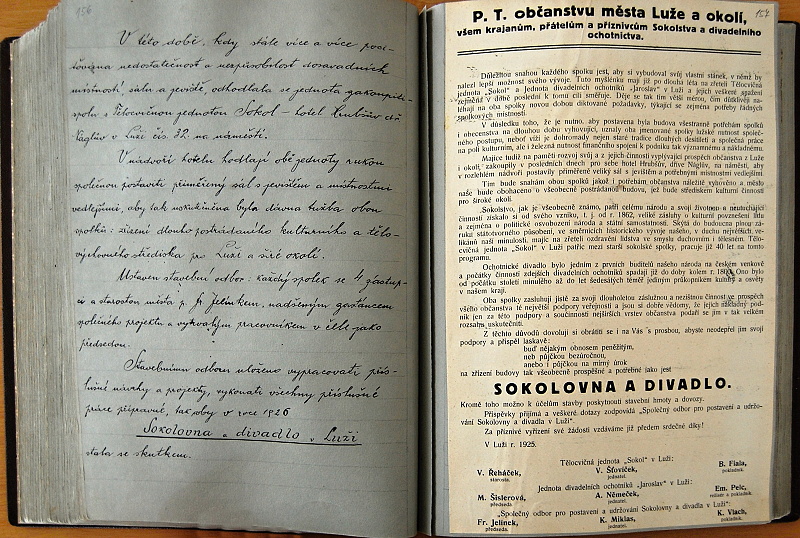 156
V této době, kdy stále více a více poci-
ťována nedostatečnost a nezpůsobilost dosavadních
místností, sálu a jeviště, odhodlala se jednota zakoupiti
spolu s Tělocvičnou jednotou Sokol – hotel Hrubšův dř.
Náglův v Luži čís. 32 na náměstí.
V nádvoří hotelu hodlají obě jednoty rukou
společnou postaviti přiměřený sál s jevištěm a místnostmi
vedlejšími, aby tak uskutečněna byla dávná tužba obou
spolků: zřízení dlouho postrádaného kulturního a tělo-
výchovného střediska pro Luži a širé okolí.
Ustaven stavební odbor: každý spolek se 4 zástup-
ci a starostou města p. Fr. Jelínkem, nadšeným zastáncem
společného projektu a vytrvalým pracovníkem v čele jako
předsedou.
Stavebnímu odboru uloženo vypracovati přís-
lušné návrhy a projekty, vykonati všechny příslušné
práce přípravné, tak aby v roce 1926
Sokolovna a divadlo v Luži
stala se skutkem.
157
P. T. občanstvu města Luže a okolí,
všem krajanům, přátelům a příznivcům Sokolstva a divadelního
ochotnictva.
Důležitou snahou každého spolku jest, aby si vybudoval svůj vlastní stánek, v němž by
nalezl lepší možnost svého vývoje. Tuto myšlénku mají již po dlouhá léta na zřeteli Tělocvičná
jednota „Sokol“ a Jednota divadelních ochotníků „Jaroslav“ v Luži a jejich veškeré snažení
zejména v době poslední k tomu cíli směřuje. Děje se tak tím větší měrou, čím důtklivěji na-
léhají na oba spolky novou dobou diktované požadavky, týkající se zejména potřeby řádných
spolkových místností.
V důsledku toho, že je nutno, aby postavena byla budova všestranně potřebám spolků
i obecenstva na dlouhou dobu vyhovující, uznaly oba jmenované spolky lužské nutnost společ-
ného postupu, neboť víží je dohromady nejen staré tradice dlouhých desítiletí a společná práce
na poli kulturním, ale i železná nutnost finančního spojení k podniku tak významnému a nákladnému.
Majíce tudíž na paměti rozvoj svůj a z jejich činnosti vyplývající prospěch občanstva z Luže
i okolí, zakoupily v posledních dnech pro sebe hotel Hrubšův, dříve Náglův, na náměstí, aby
v rozlehlém nádvoří postavily přiměřeně veliký sál s jevištěm a potřebnými místnostmi vedlejšími.
Tím bude snahám obou spolků jakož i potřebám občanstva náležitě vyhověno a město
naše bude obohaceno o všeobecně postrádanou budovu, jež bude střediskem kulturní činnosti
pro široké okolí.
„Sokolstvo, jak je všeobecně známo, patří celému národu a svojí životnou a neutuchající
činností získalo si od svého vzniku, t. j. od r. 1862, veliké zásluhy o kulturní povznešení lidu
a zejména o politické osvobození národa a státní samostatnost. Skýtá do budoucna plnou zá-
ruku státotvorného působení, ve směrnicích historického vývoje našeho, v duchu největších ve-
likánů naší minulosti, majíc na zřeteli ozdravění lidstva ve smyslu duchovním i tělesném. Tělo-
cvičná jednota „Sokol“ v Luži patříc mezi starší sokolské spolky, pracuje již 40 let na tomto
programu.
Ochotnické divadlo bylo jedním z prvních buditelů našeho národa na českém venkově
a počátky činnosti zdejších divadelních ochotníků spadají již do doby kolem r. Ono bylo
od počátku století minulého až do let šedesátých téměř jediným průkopníkem kultury a osvěty
v našem kraji.
Oba spolky zasluhují jistě za svoji dlouholetou záslužnou a nezištnou činnost ve prospěch
všeho občanstva té největší podpory veřejnosti a jsou si dobře vědomy, že jejich nákladný pod-
nik jen za této podpory a součinnosti nejširších vrstev občanstva podaří se jim v tak velkém
rozsahu uskutečniti.
Z těchto důvodů dovolují si obrátiti se i na Vás s prosbou, abyste neodepřel jim svojí
podpory a přispěl laskavě:
buď nějakým obnosem peněžitým,
neb půjčkou bezúročnou,
anebo i půjčkou na mírný úrok
na zřízení budovy tak všeobecně prospěšné a potřebné jako jest
SOKOLOVNA A DIVADLO.
Kromě toho možno k účelům stavby poskytnouti stavební hmoty a dovozy.
Příspěvky přijímá a veškeré dotazy zodpovídá „Společný odbor pro postavení a udržo-
vání Sokolovny a divadla v Luži“.
Za příznivé vyřízení své žádosti vzdáváme již předem srdečné díky!
V Luži r. 1925.
Tělocvičná jednota „Sokol“ v Luži:
V. Řeháček, V. Šťovíček, B. Fiala,
starosta. jednatel. pokladník.
Jednota divadelních ochotníků „Jaroslav“ v Luži:
M. Šislerová, A. Němeček, Em. Pelc,
předseda. jednatel. režisér a pokladník.
„Společný odbor pro postavení a udržování Sokolovny a divadla v Luži“:
Fr. Jelínek, K. Miklas, K. Vlach,
předseda. jednatel. pokladník.